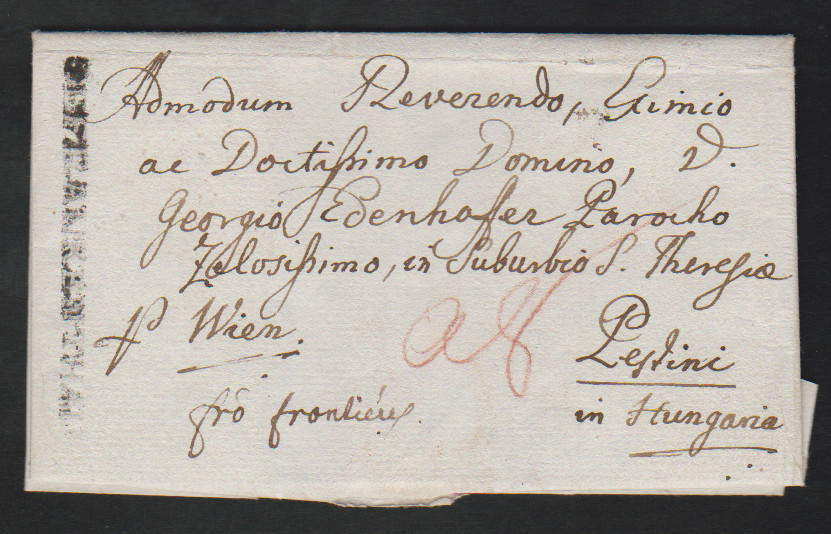 Admodum Reverendo, Eximio
ac Doctissimo Domino, D.
Georgio Edenhoffer Parocho
Zelosissimo, in Suburbio S. Theresiæ
Wien.
Pestini
frò frontiéres.
in Hungaria